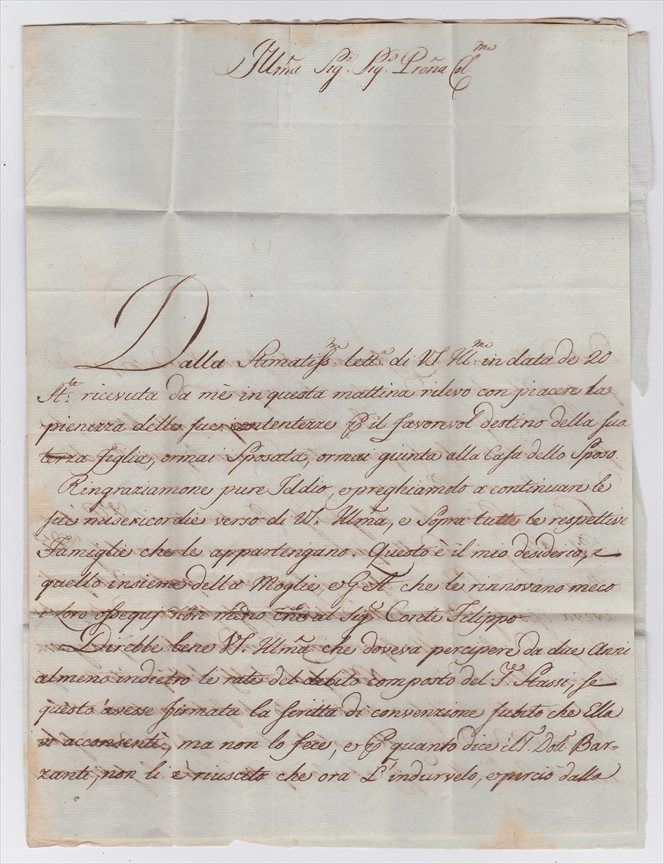 Illma Sig.ra Sig.ra Prona Col.ma
Dalla Stimatiss.ma lett.a di VS. Ill.ma in data de 20
ricevuta da me in questa mattina rilevo con piacere la
pienezza delle sue contentezze il favorevol destino della sua
terza figlia, ormai Sposata, ormai giunta alla Casa dello Sposo.
Ringraziamone pure Iddio, e preghiamolo a continuare le
sue misericordie verso di VS. Illma, e Sopra tutte le respettive
Famiglie che le appartengano. Questo è il mio desiderio, e
quello insieme della Moglie, che le rinnovano meco
i loro ossequj non meno che al Sig.r Filippo.
Direbbe bene VS. Illma che doveva percipere da due Anni
almeno indietro le rate del debito composto del Stassi, se
questo avesse firmata la scritta di convenzione subito che Ella
vi acconsentì, ma non lo fece, e quanto dice il Dott. Bar-
zanti, non li è riuscito che ora l'indurvelo, e perciò dalla